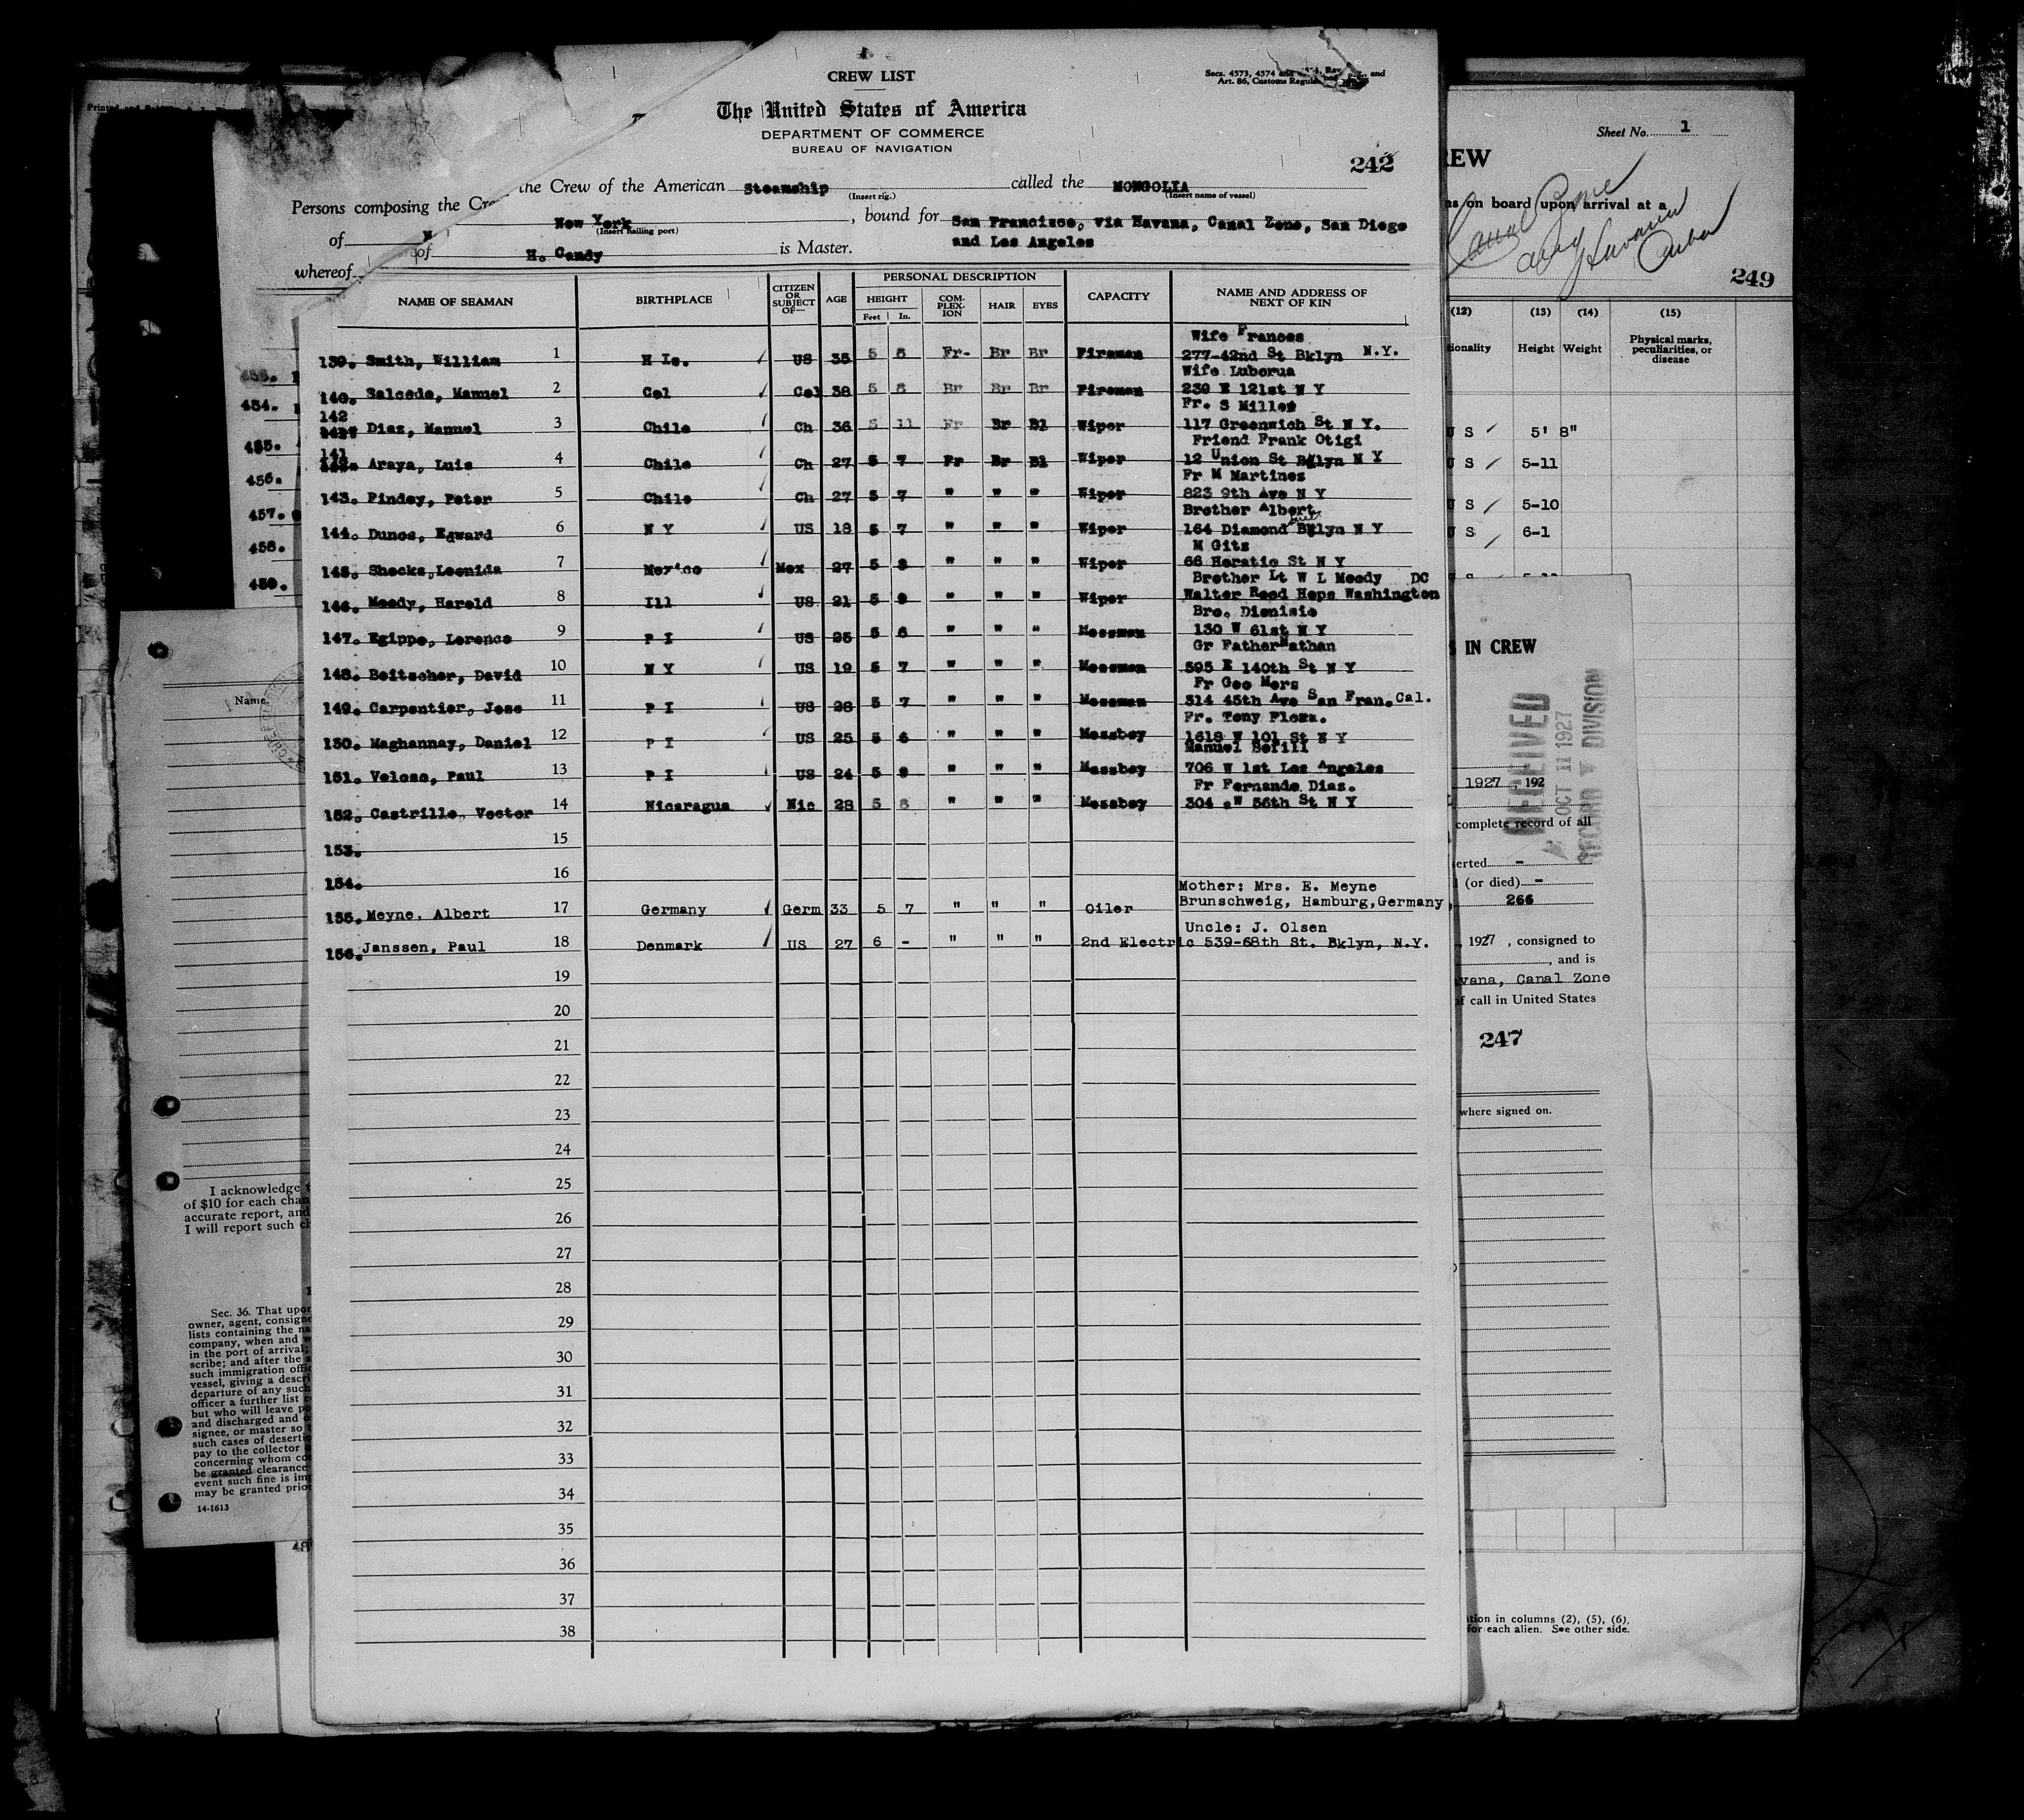 CREW LIST
Secs. 4573, 4574 and
Art. 86, Customs Regula
The United States of America
DEPARTMENT OF COMMERCE
BUREAU OF NAVIGATION
242
the Crew of the American Steamship called the MONGOLIA
(Insert rig.) (Insert name of vessel)
Persons composing the Cre
of New York, bound for San Francisco, via Havana, Canal Zone, San Diego
(Insert hailing port) and Los Angeles
whereof of H. Candy is Master.
NAME OF SEAMAN BIRTHPLACE CITIZEN OR SUBJECT OF— AGE PERSONAL DESCRIPTION CAPACITY NAME AND ADDRESS OF NEXT OF KIN
HEIGHT COM-PLEX-ION HAIR EYES
Feet In.
Wife Frances
139. Smith, William 1 H Is. US 35 5 8 Fr- Br Br Fireman 277-42nd St Bklyn N.Y.
Wife Luborua
140. Salcedo, Manuel 2 Col Col 38 5 8 Br Br Br Fireman 239 E 121st N Y
Fr. S Miller
142 Diaz, Manuel 3 Chile Ch 36 5 11 Fr Br Bl Wiper 117 Greenwich St N Y.
Friend Frank Otigi
141 Araya, Luis 4 Chile Ch 27 5 7 Fr Br Bl Wiper 12 Union St Bklyn N Y
Fr M Martines
143. Pindey, Peter 5 Chile Ch 27 5 7 " " " Wiper 823 9th Ave N Y
Brother Albert
144. Dunos, Edward 6 N Y US 18 5 7 " " " Wiper 164 Diamond Bklyn N Y
M Gitz
145. Shocks, Leonida 7 Mexico Mex 27 5 8 " " " Wiper 66 Horatio St N Y
Brother Lt W L Moody DC
146. Moody, Harold 8 Ill US 21 5 9 " " " Wiper Walter Reed Hops Washington
Bro. Dionisio
147. Egippo, Lorenco 9 P I US 25 5 6 " " " Messman 130 W 61st N Y
Gr Father Nathan
148. Beitscher, David 10 N Y US 19 5 7 " " " Messman 595 E 140th St N Y
Fr Geo Mors
149. Carpentier, Jose 11 P I US 28 5 7 " " " Messman 314 45th Ave San Fran. Cal.
Fr. Tony Flozz.
150. Maghannay, Daniel 12 P I US 25 5 6 " " " Messboy 1618 W 101 St N Y
Manuel Sefill
151. Veloso, Paul 13 P I US 24 5 9 " " " Messboy 706 W 1st Los Angeles
Fr Fernando Diaz.
152. Castrillo, Vector 14 Nicaragua Nic 28 5 8 " " " Messboy 304 W 56th St N Y
153. 15
154. 16
Mother: Mrs. E. Meyne
155. Meyne, Albert 17 Germany Germ 33 5 7 " " " Oiler Brunschweig, Hamburg, Germany
Uncle: J. Olsen
156. Janssen, Paul 18 Denmark US 27 6 - " " " 2nd Electric 539-68th St. Bklyn, N.Y.
19
20
21
22
23
24
25
26
27
28
29
30
31
32
33
34
35
36
37
38
454.
455.
456.
457.
458.
459.
Name
I acknowledge
of $10 for each chan
accurate report, and
I will report such ch
Sec. 36. That upon
owner, agent, consigne
lists containing the na
company, when and w
in the port of arrival;
scribe; and after the a
such immigration offic
vessel, giving a descri
departure of any such
officer a further list
but who will leave po
and discharged and
signee, or master so
such cases of deserti
pay to the collector
concerning whom co
be granted clearance
event such fine is im
may be granted prio
14-1613
Sheet No. 1
REW
ns on board upon arrival at a
Canal Zone
Havana
Cuba
249
(12) (13) (14) (15)
tionality Height Weight Physical marks, peculiarities, or disease
U S 5' 8"
U S 5-11
U S 5-10
U S 6-1
IN CREW
RECEIVED
OCT 11 1927
RECORD DIVISION
1927, 192
complete record of all
erted -
(or died) -
266
, 1927, consigned to
, and is
vana, Canal Zone
of call in United States
247
where signed on.
tion in columns (2), (5), (6),
for each alien. See other side.